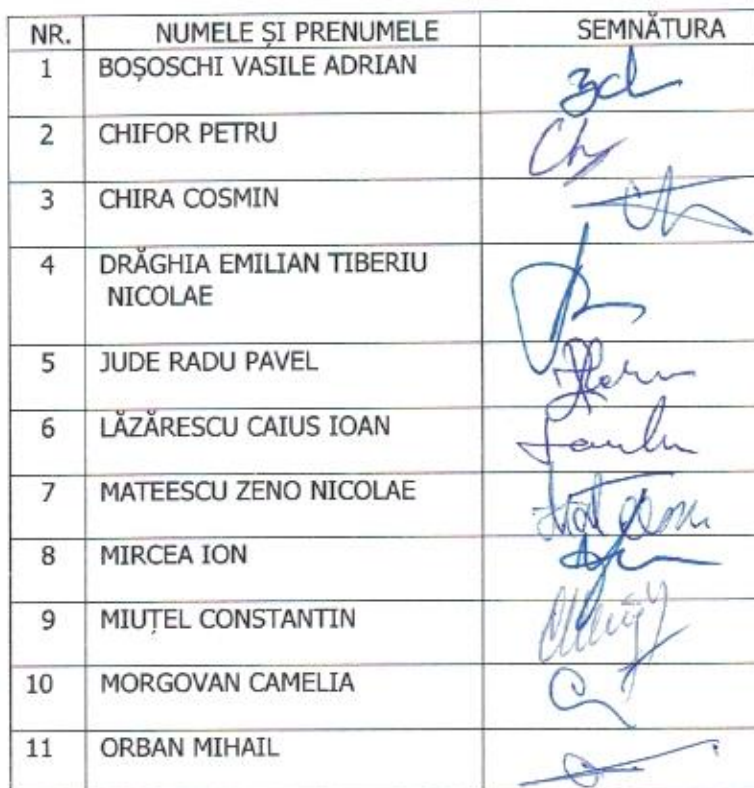 NR. NUMELE ȘI PRENUMELE SEMNĂTURA
1 BOȘOSCHI VASILE ADRIAN
2 CHIFOR PETRU
3 CHIRA COSMIN
4 DRĂGHIA EMILIAN TIBERIU
NICOLAE
5 JUDE RADU PAVEL
6 LĂZĂRESCU CAIUS IOAN
7 MATEESCU ZENO NICOLAE
8 MIRCEA ION
9 MIUȚEL CONSTANTIN
10 MORGOVAN CAMELIA
11 ORBAN MIHAIL